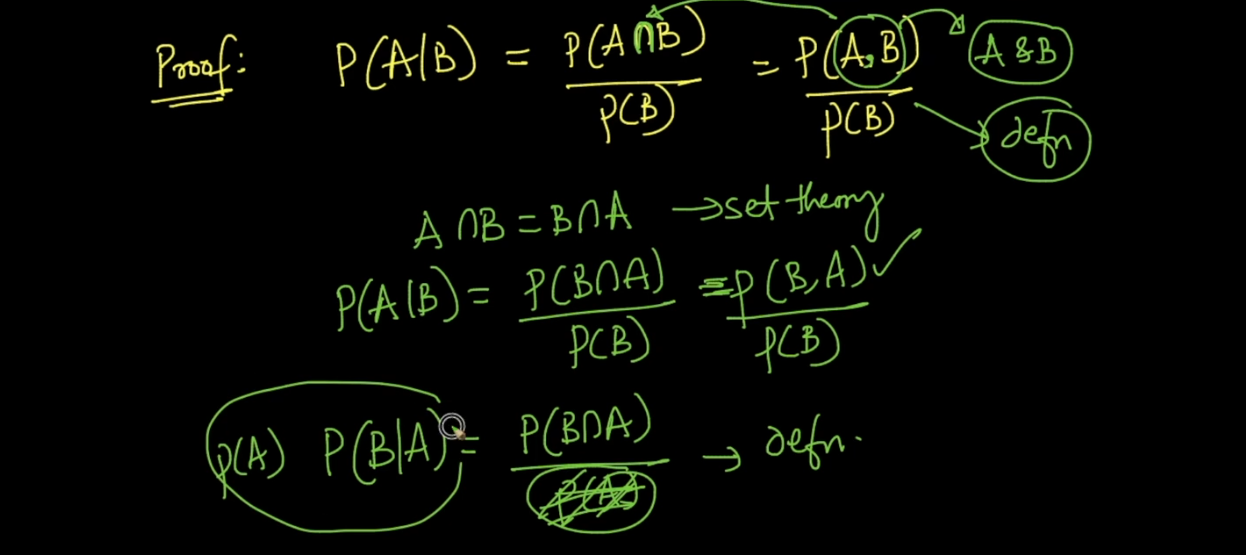 Proof: P(A|B) = P(A∩B)/P(B) = P(A,B)/P(B) → A & B
→ defn
A∩B = B∩A → set theory
P(A|B) = P(B∩A)/P(B) = P(B,A)/P(B) ✓
P(A) P(B|A) = P(B∩A)/P(A) → defn.